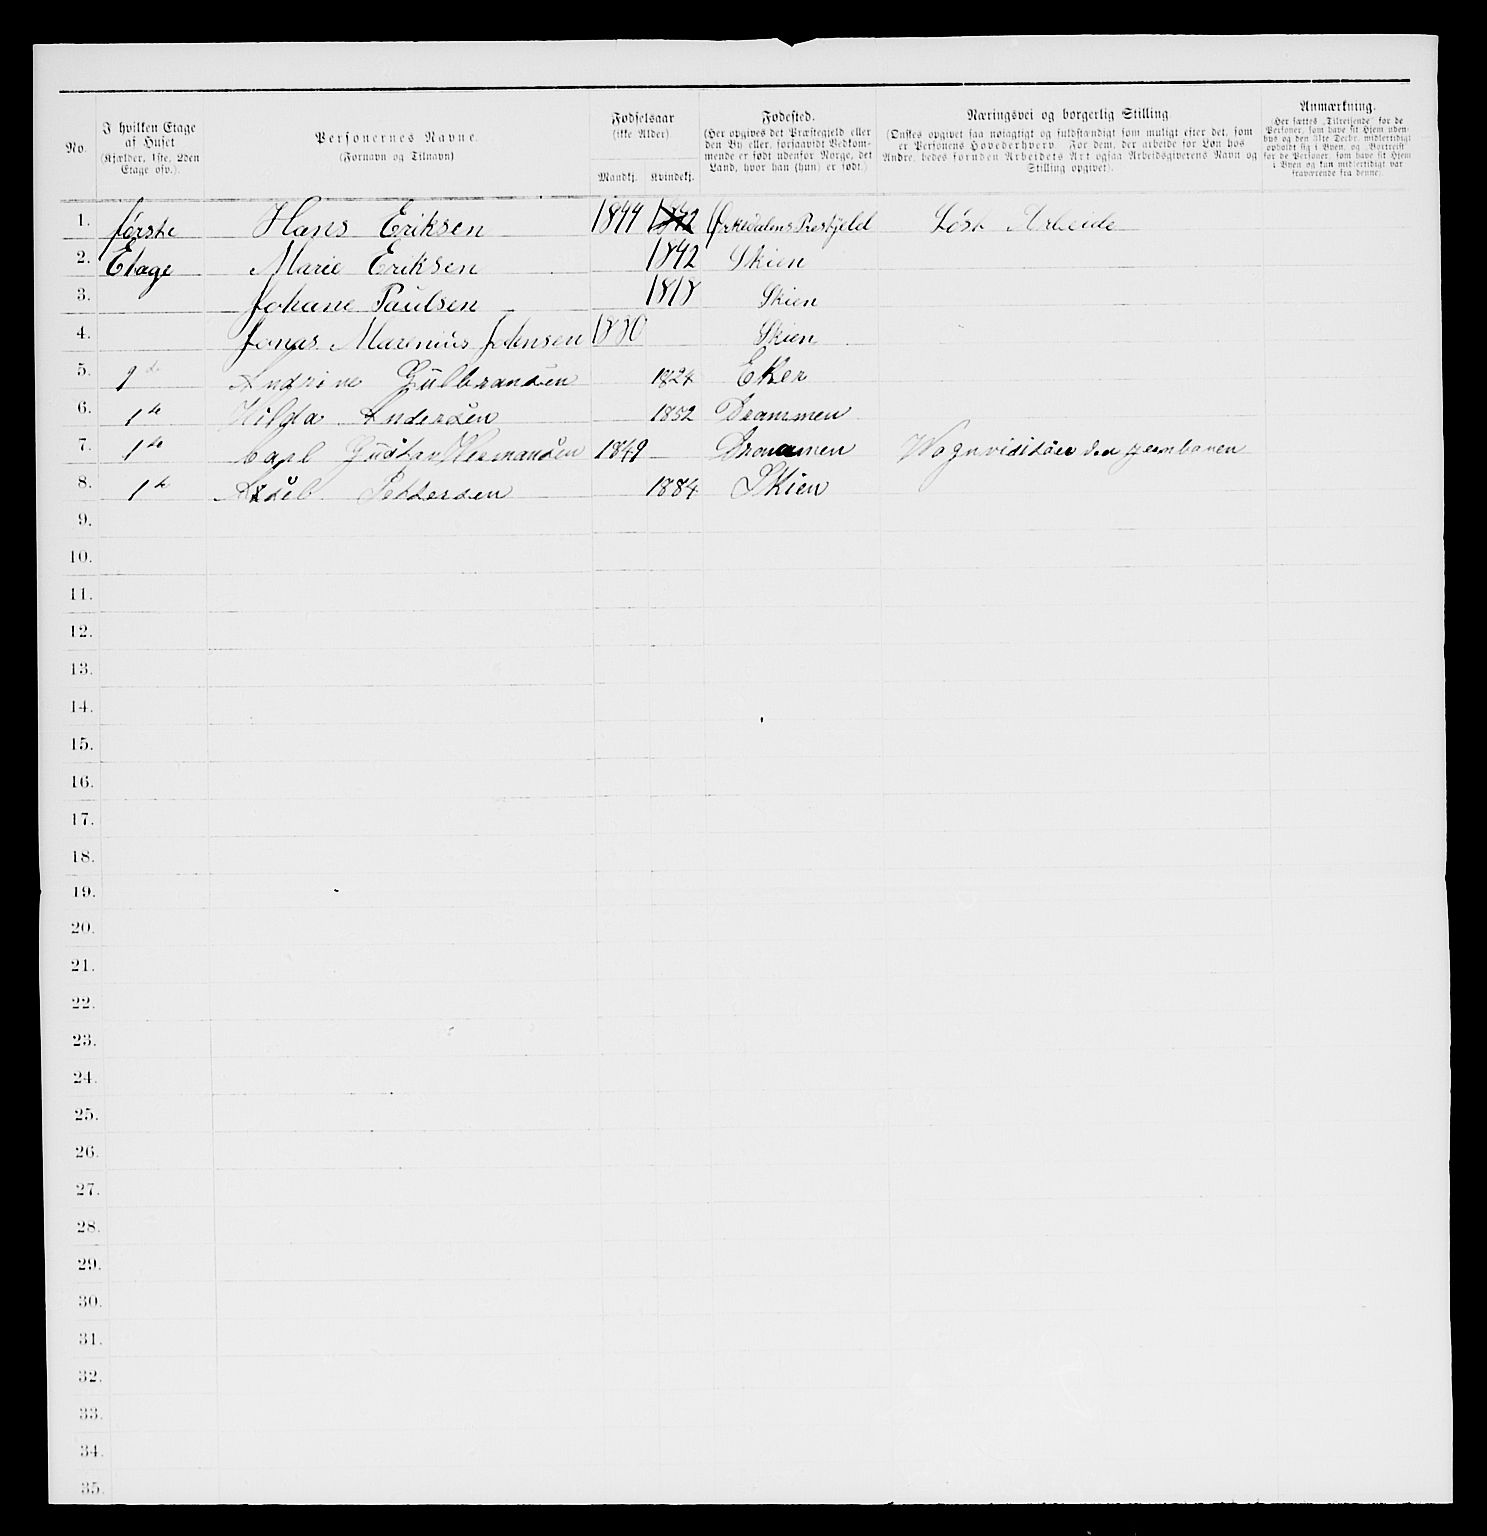 No.
I hvilken Etage
af Huset
(Kjælder, 1ste, 2den
Etage osv.).
Personernes Navne.
(Fornavn og Tilnavn)
Fødselsaar
(ikke Alder)
Mandkj. Kvindekj.
Fødested.
(Her opgives det Præstegjeld eller
den By eller, forsaavidt Vedkom-
mende er født udenfor Norge, det
Land, hvor han (hun) er født.)
Næringsvei og borgerlig Stilling.
(Ønskes opgivet saa nøiagtigt og fuldstændigt som muligt efter det, som
er Personens Hovederhverv. For dem, der arbeide for Løn hos
Andre, bedes foruden Arbeidets Art ogsaa Arbeidsgiverens Navn og
Stilling opgivet).
Anmærkning.
(Her sættes „Tilreisende" for de
Personer, som have sit Hjem uden-
bys og den 31te Decbr. midlertidigt
opholdt sig i Byen, og „Bortreist"
for de Personer, som have sit Hjem
i Byen og kun midlertidigt var
fraværende fra denne).
1. første Hans Eriksen 1844 1842 Ørkedalens Prestjeld Løst Arbeide
2. Etage Marie Eriksen 1842 Skien
3. Johane Paulsen 1818 Skien
4. Jonas Marenius Johnsen 1880 Skien
5. Andrine Gulbransen 1824 Eker
6. 1ste Hilda Andersen 1852 Drammen
7. 1ste Carl Gustav Hermansen 1849 Drammen Wognvisitør
8. 1ste Peddersen 1884 Skien
9.
10.
11.
12.
13.
14.
15.
16.
17.
18.
19.
20.
21.
22.
23.
24.
25.
26.
27.
28.
29.
30.
31.
32.
33.
34.
35.